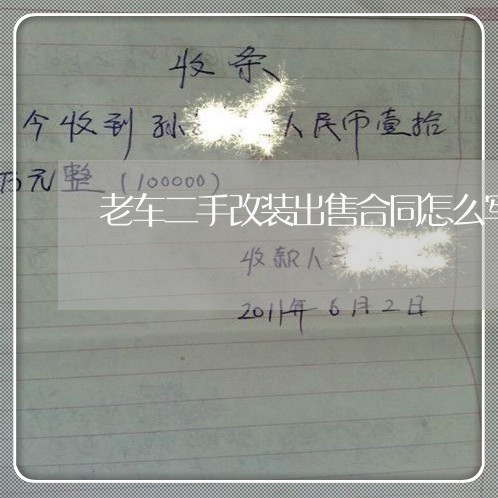 收条
今收到孙 人民币壹拾
万元整(100000)
老车二手改装出售合同怎么写
收款人
2011年6月2日